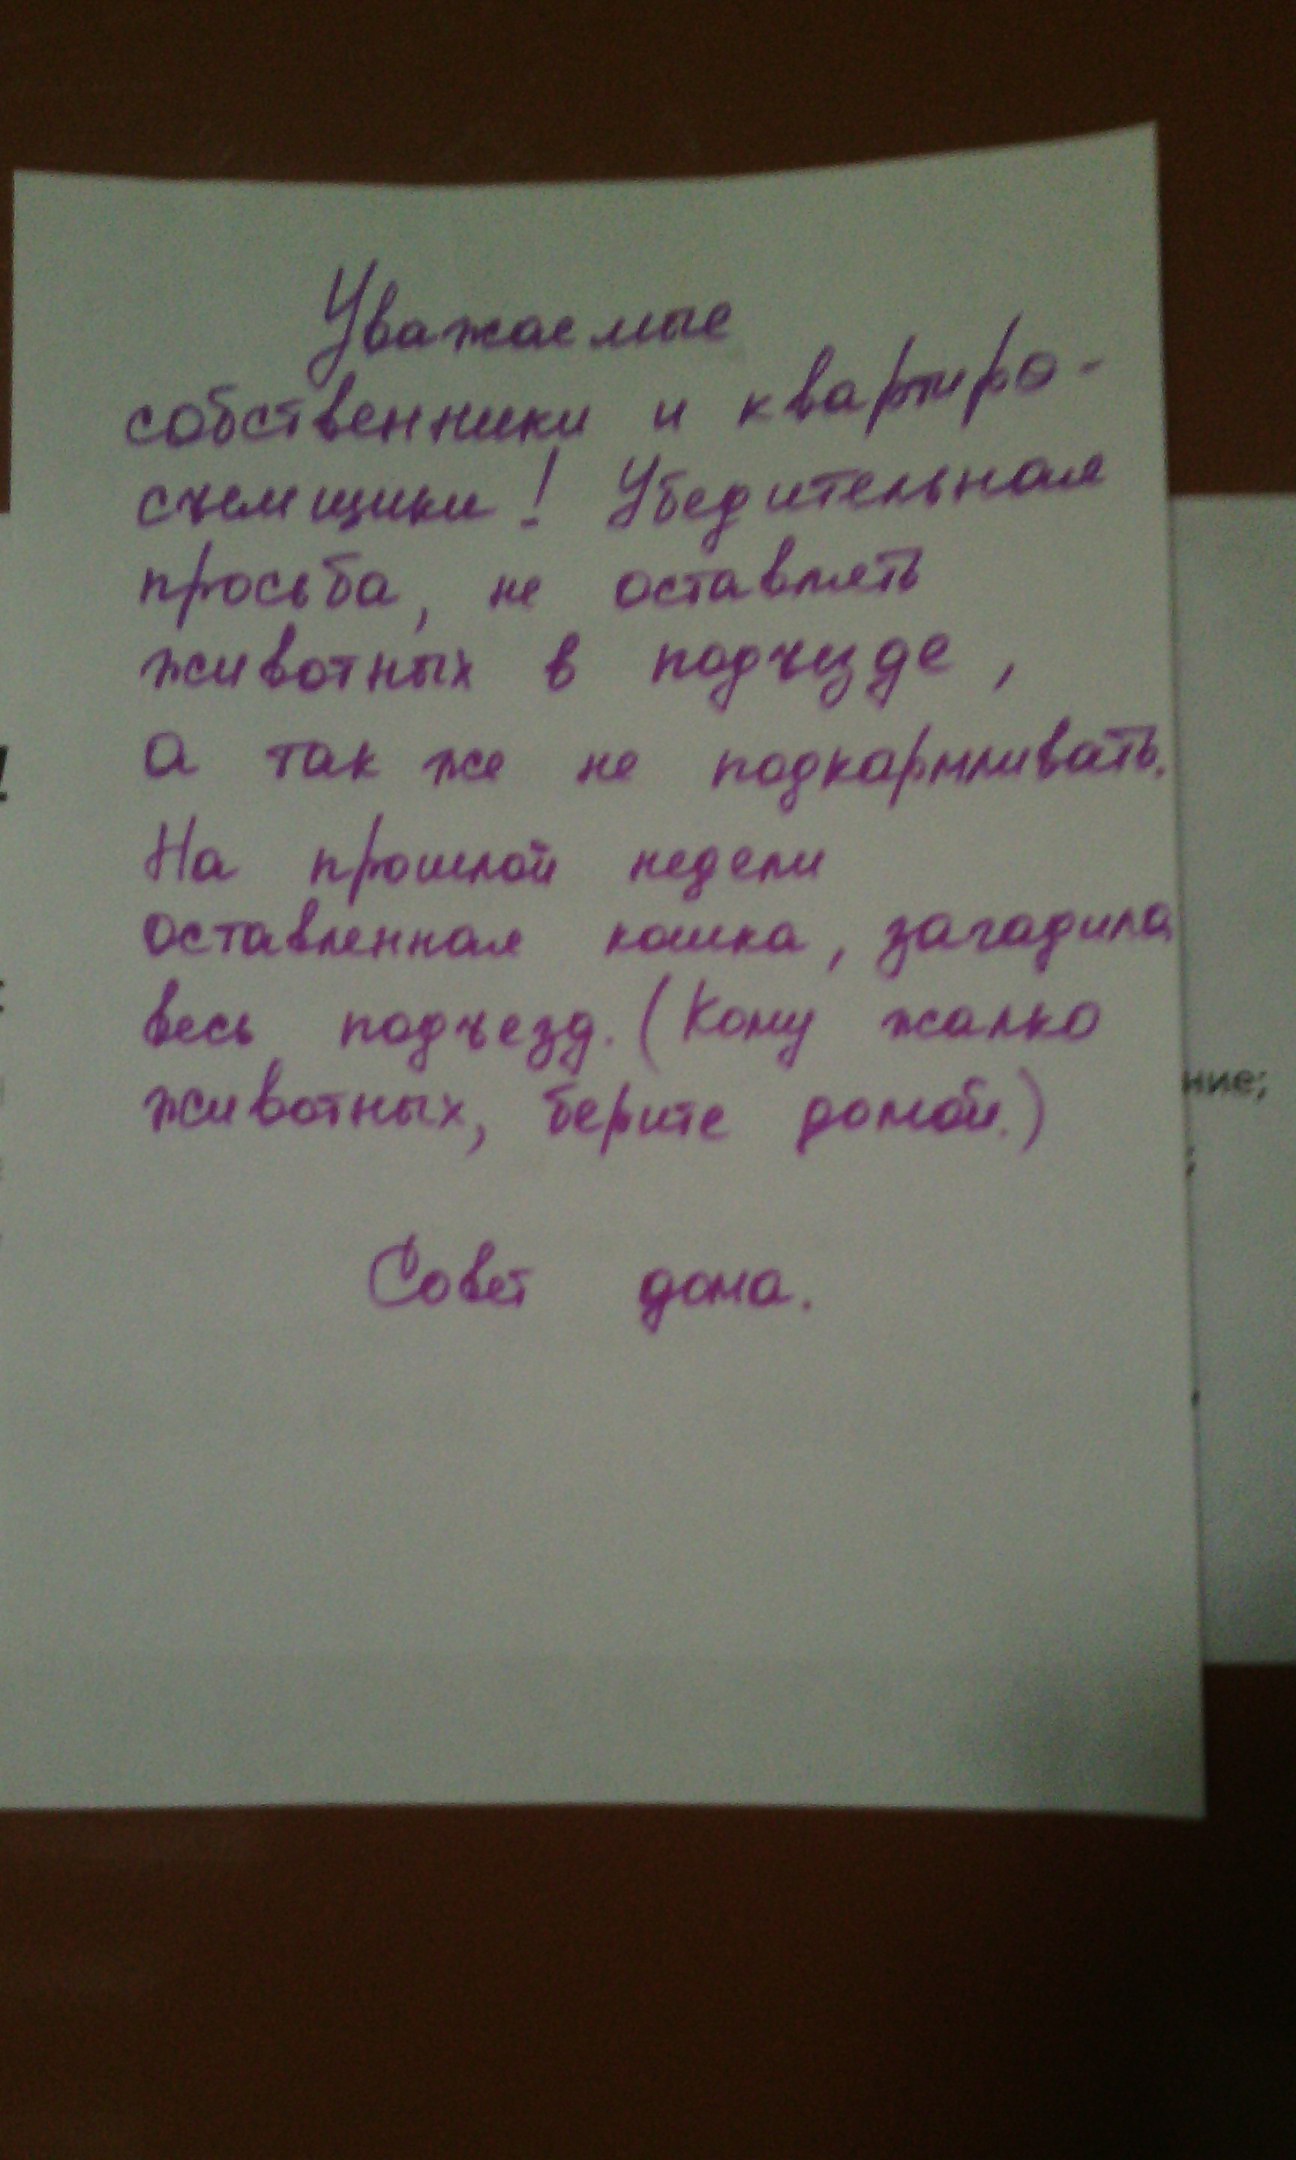 Уважаемые
собственники и квартиро-
съемщики! Убедительная
просьба, не оставлять
животных в подъезде,
а так же не подкармливать.
На прошлой недели
оставленная кошка, загадила
весь подъезд. (Кому жалко
животных, берите домой.)
Совет дома.
ние;